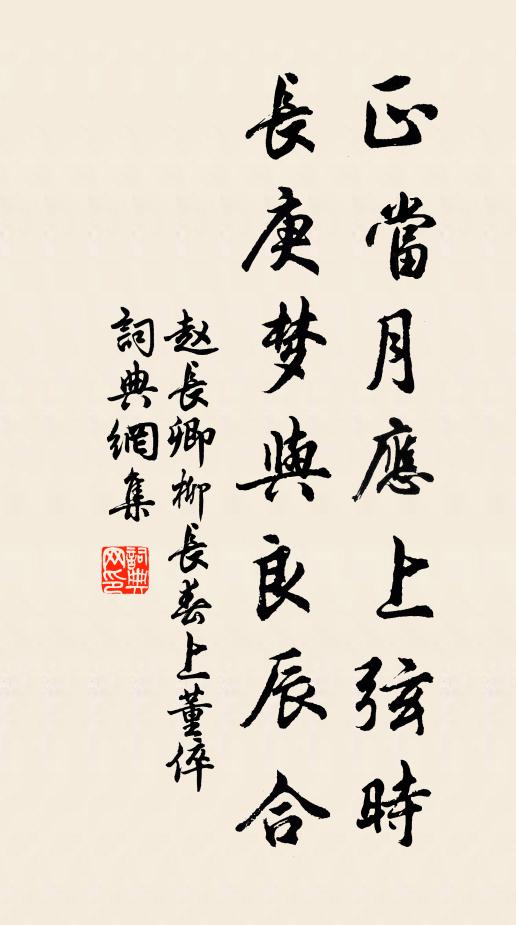 正當月應上弦時
長庚梦與良辰合
赵長卿柳長春上董倅
詞典網集
詞典网印